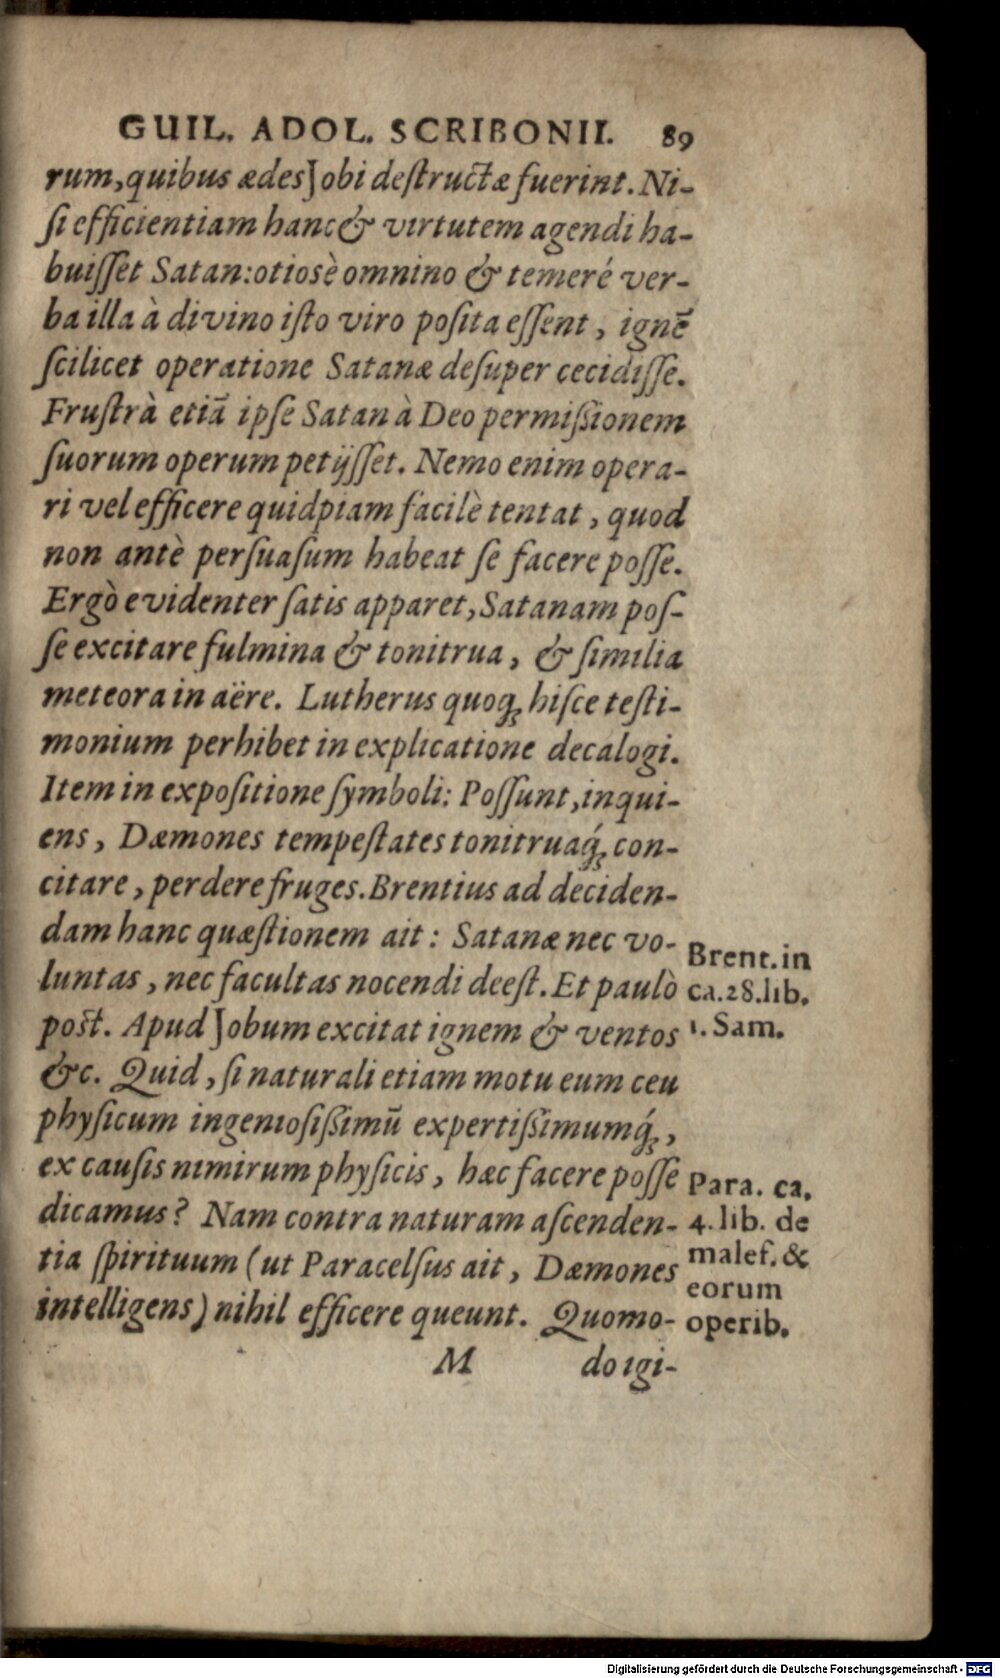 GUIL. ADOL. SCRIBONII. 89
rum, quibus ædes Jobi deſtructæ fuerint. Ni-
ſi efficientiam hanc & virtutem agendi ha-
buiſſet Satan: otiosè omnino & temeré ver-
ba illa à divino iſto viro poſita eſſent, ignē
ſcilicet operatione Satanæ deſuper cecidiſſe.
Fruſtrà etiā ipſe Satan à Deo permiſsionem
ſuorum operum petijſſet. Nemo enim opera-
ri vel efficere quidpiam facilè tentat, quod
non antè perſuaſum habeat ſe facere poſſe.
Ergò evidenter ſatis apparet, Satanam poſ-
ſe excitare fulmina & tonitrua, & ſimilia
meteora in aëre. Lutherus quoq; hiſce teſti-
monium perhibet in explicatione decalogi.
Item in expoſitione ſymboli: Poſſunt, inqui-
ens, Dæmones tempeſtates tonitruaq́; con-
citare, perdere fruges. Brentius ad deciden-
dam hanc quæſtionem ait: Satanæ nec vo-
luntas, nec facultas nocendi deeſt. Et paulò
poſt. Apud Jobum excitat ignem & ventos
&c. Quid, ſi naturali etiam motu eum ceu
phyſicum ingenioſiſsimū expertiſsimumq́;,
ex cauſis nimirum phyſicis, hæc facere poſſe
dicamus? Nam contra naturam aſcenden-
tia ſpirituum (ut Paracelſus ait, Dæmones
intelligens) nihil efficere queunt. Quomo-
M do igi-
Brent. in
ca. 28. lib.
1. Sam.
Para. ca.
4. lib. de
malef. &
eorum
operib.
Digitalisierung gefördert durch die Deutsche Forschungsgemeinschaft - DFG